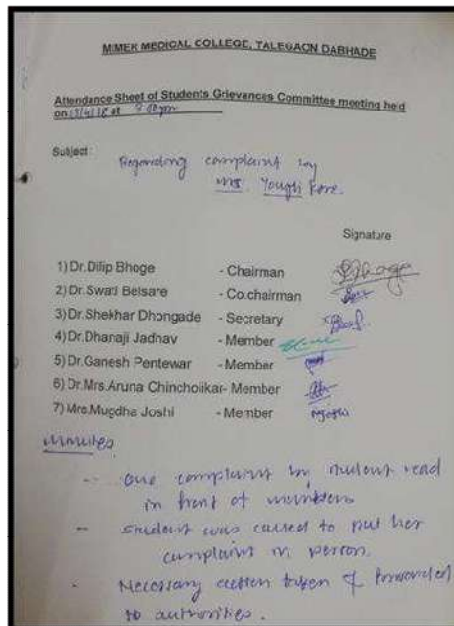 MIMER MEDICAL COLLEGE, TALEGAON DABHADE
Attendance Sheet of Students Grievances Committee meeting held
on at
Subject:
Regarding complaint by
Kore.
Signature
1) Dr.Dilip Bhoge - Chairman
2) Dr.Swati Belsare - Co.chairman
3) Dr.Shekhar Dhongade - Secretary
4) Dr.Dhanaji Jadhav - Member
5) Dr.Ganesh Pentewar - Member
6) Dr.Mrs.Aruna Chincholikar- Member
7) Mrs.Mugdha Joshi - Member
Minutes
- One complaint by student read
in front of members
- Student was called to put her
complaint in person.
- Necessary action taken & forwarded
to authorities.